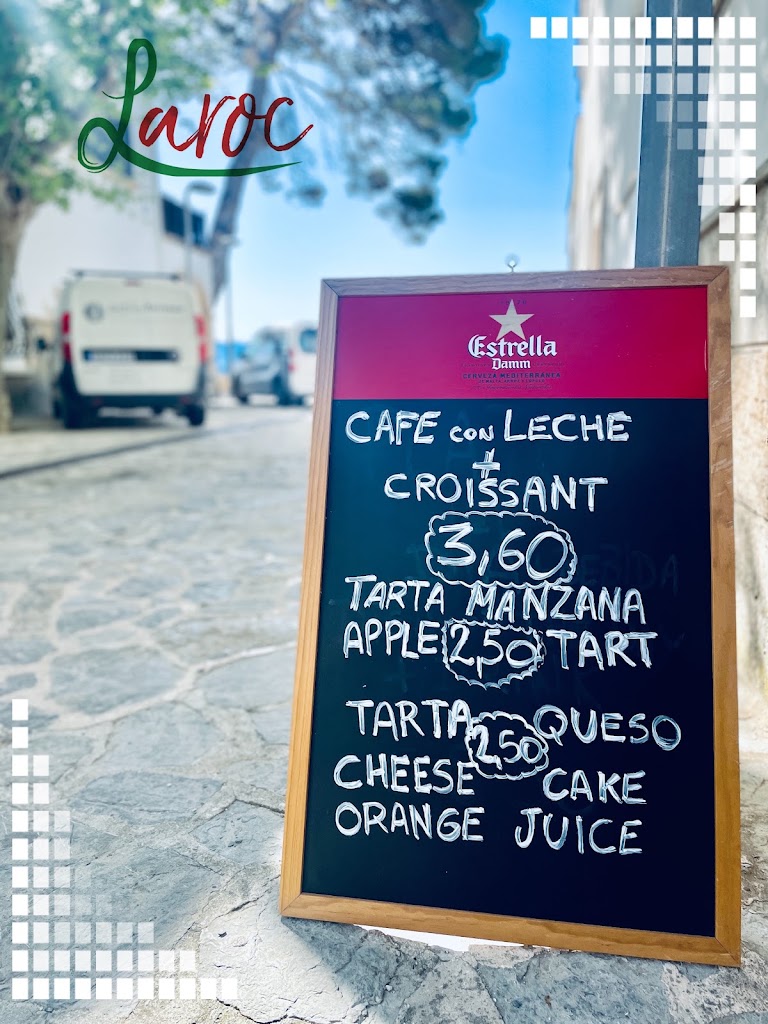 Laroc
Estrella
Damm
CERVEZA MEDITERRÁNEA
CAFE CON LECHE
+
CROISSANT
3,60
TARTA MANZANA
APPLE 2,50 TART
TARTA QUESO
2,50
CHEESE CAKE
ORANGE JUICE